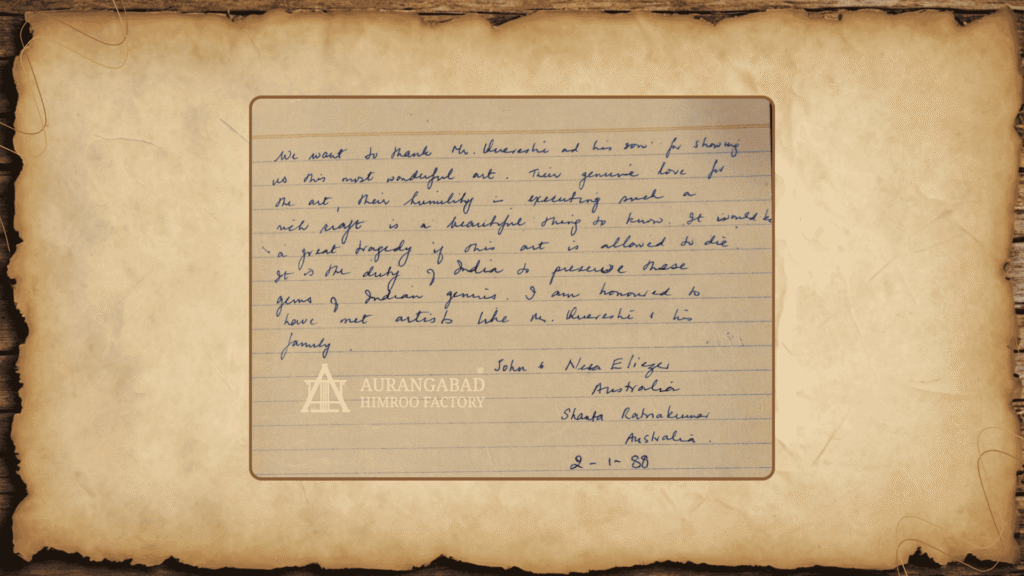 We want to thank Mr. Quereshi and his son for showing
us this most wonderful art. Their genuine love for
the art, their humility in executing such a
rich craft is a beautiful thing to know. It would be
a great tragedy if this art is allowed to die.
It is the duty of India to preserve these
gems of Indian genius. I am honoured to
have met artists like Mr. Quereshi & his
family.
John & Nesa Eliezer
Australia
Shanta Ratnakumar
Australia.
2-1-88
AURANGABAD
HIMROO FACTORY